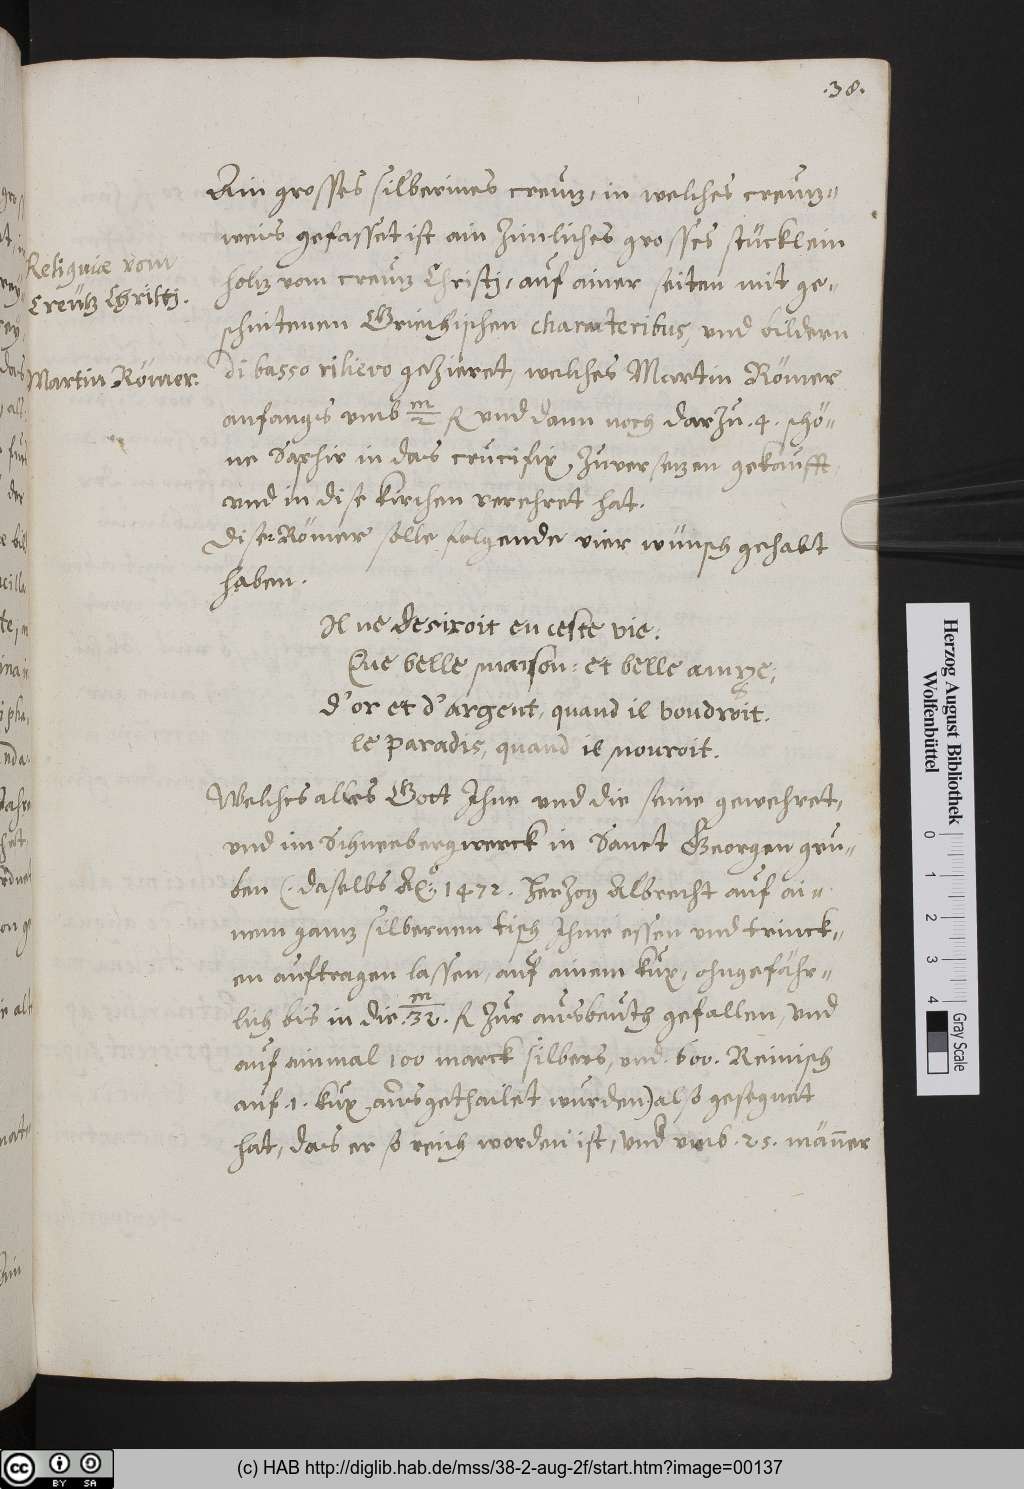 .38.
Ain grosses silbernes creutz, in welches creutz-
weis gefasset ist ain zimliches grosses stücklein
Reliquiæ vom
Creütz Christj.
holtz vom creutz Christj, auf ainer seiten mit ge-
schnitenen Griechischen characteribus, und bildern
Martin Römer.
di basso rilievo gezieret, welches Martin Römer
anfangs umb m/2 fl und dann noch darzu .4. schö-
ne Saphir in das crucifix, zuversetzen gekaufft
und in dise kirchen verehret hat.
Diser Römer solle folgende vier wünsch gehabt
haben.
Il ne desiroit en ceste vie:
Que belle maison: et belle amye,
d'or et d'argent, quand il voudroit.
le paradis, quand il mouroit.
Welches alles Gott Ihne und die seine gewehret,
und im Schneebergwerck in Sanct Georgen gru-
ben (daselbs Aõ: 1472. Herzog Albrecht auf ai-
nem gantz silbernen tisch Ihme essen und trinck-
en auftragen lassen, auf ainem kux, ohngefähr-
lich bis in die m/32. fl zur ausbeuth gefallen, und
auf ainmal 100 marck silbers, und .600. Reinisch
auf .1. kux ausgethailet wurden) also gesegnet
hat, das er so reich worden ist, und umb .25. män̄er
Herzog August Bibliothek
Wolfenbüttel
0 1 2 3 4
Gray Scale
cc BY SA
(c) HAB http://diglib.hab.de/mss/38-2-aug-2f/start.htm?image=00137